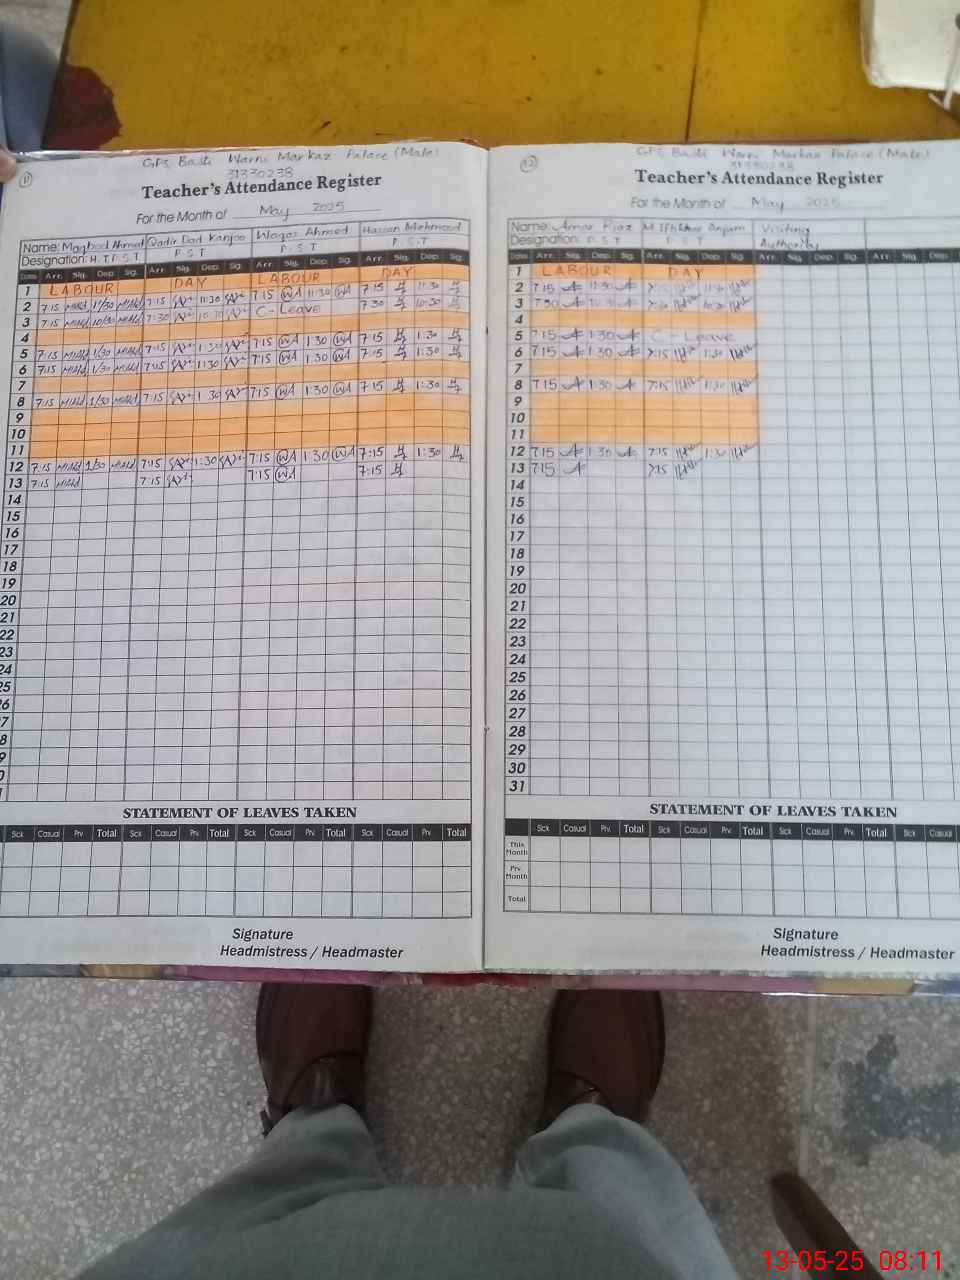 11
GPS Basti Warni Markaz Palace (Male)
31330238
Teacher's Attendance Register
For the Month of May 2025
Name: Maqbool Ahmad Qadir Dad Kanjoo Waqas Ahmed Hassan Mehmood
Designation: H.T P.S.T P.S.T P.S.T P.S.T
Date Arr. Sig. Dep. Sig. Arr. Sig. Dep. Sig. Arr. Sig. Dep. Sig. Arr. Sig. Dep. Sig.
1 LABOUR DAY LABOUR DAY
2 7:15 11:30 7:15 11:30 7:15 WA 11:30 WA 7:15 11:30
3 7:15 10:30 7:30 10:30 C-Leave 7:30 10:30
4
5 7:15 1:30 7:15 1:30 7:15 WA 1:30 WA 7:15 1:30
6 7:15 1:30 7:15 1:30 7:15 WA 1:30 WA 7:15 1:30
7
8 7:15 1:30 7:15 1:30 7:15 WA 1:30 WA 7:15 1:30
9
10
11
12 7:15 1:30 7:15 1:30 7:15 WA 1:30 WA 7:15 1:30
13 7:15 7:15 7:15 WA 7:15
14
15
16
17
18
19
20
21
22
23
24
25
26
27
28
29
30
31
STATEMENT OF LEAVES TAKEN
Sck Casual Prv. Total Sck Casual Prv. Total Sck Casual Prv. Total Sck Casual Prv. Total
Signature
Headmistress / Headmaster
12
GPS Basti Warni Markaz Palace (Male)
31330238
Teacher's Attendance Register
For the Month of May 2025
Name: Amar Riaz M Iftikhar Anjum Visiting
Designation: P.S.T P.S.T Authority
Date Arr. Sig. Dep. Sig. Arr. Sig. Dep. Sig. Arr. Sig. Dep. Sig. Arr. Sig. Dep.
1 LABOUR DAY
2 7:15 11:30 7:15 11:30
3 7:30 10:30 7:30 10:30
4
5 7:15 1:30 C-Leave
6 7:15 1:30 7:15 1:30
7
8 7:15 1:30 7:15 11:30
9
10
11
12 7:15 1:30 7:15 1:30
13 7:15 7:15
14
15
16
17
18
19
20
21
22
23
24
25
26
27
28
29
30
31
STATEMENT OF LEAVES TAKEN
Sck Casual Prv. Total Sck Casual Prv. Total Sck Casual Prv. Total Sck Casual
This Month
Prv. Month
Total
Signature
Headmistress / Headmaster
13-05-25 08:11